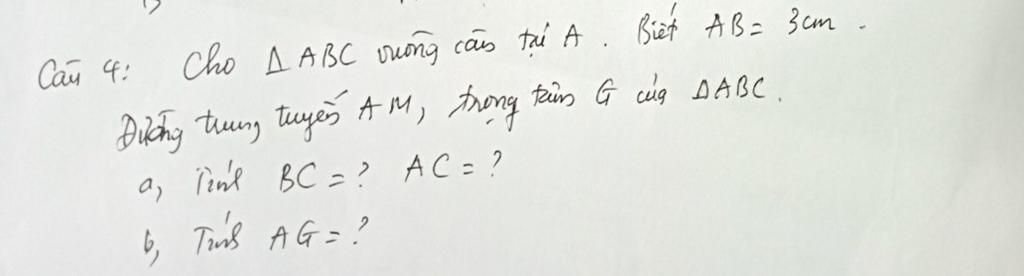 Câu 4: Cho Δ ABC vuông cân tại A. Biết AB = 3cm.
Đường trung tuyến AM, trọng tâm G của ΔABC.
a, Tính BC = ? AC = ?
b, Tính AG = ?